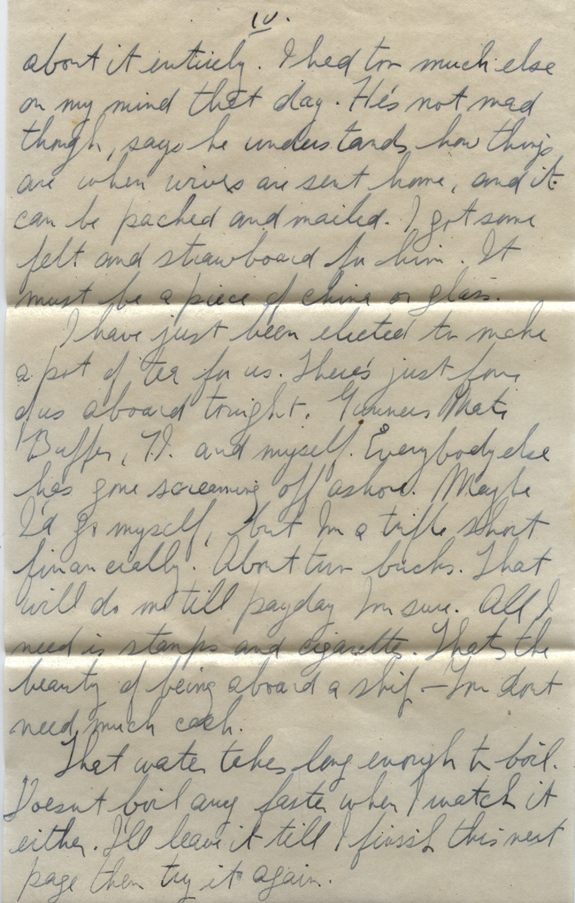 IV.
about it entirely. I had too much else
on my mind that day. He's not mad
though, says he understands how things
are when wives are sent home, and it
can be packed and mailed. I got some
felt and strawboard for him. It
must be a piece of china or glass.
I have just been elected to make
a pot of tea for us. There's just four
of us aboard tonight. Gunners Mate,
Buffer, and myself. Everybody else
has gone screaming off ashore. Maybe
I'd go myself, but I'm a trifle short
financially. About two bucks. That
will do me till payday I'm sure. All I
need is stamps and cigarettes. That's the
beauty of being aboard a ship — You don't
need much cash.
That water takes long enough to boil.
Doesn't boil any faster when I watch it
either. I'll leave it till I finish this next
page then try it again.